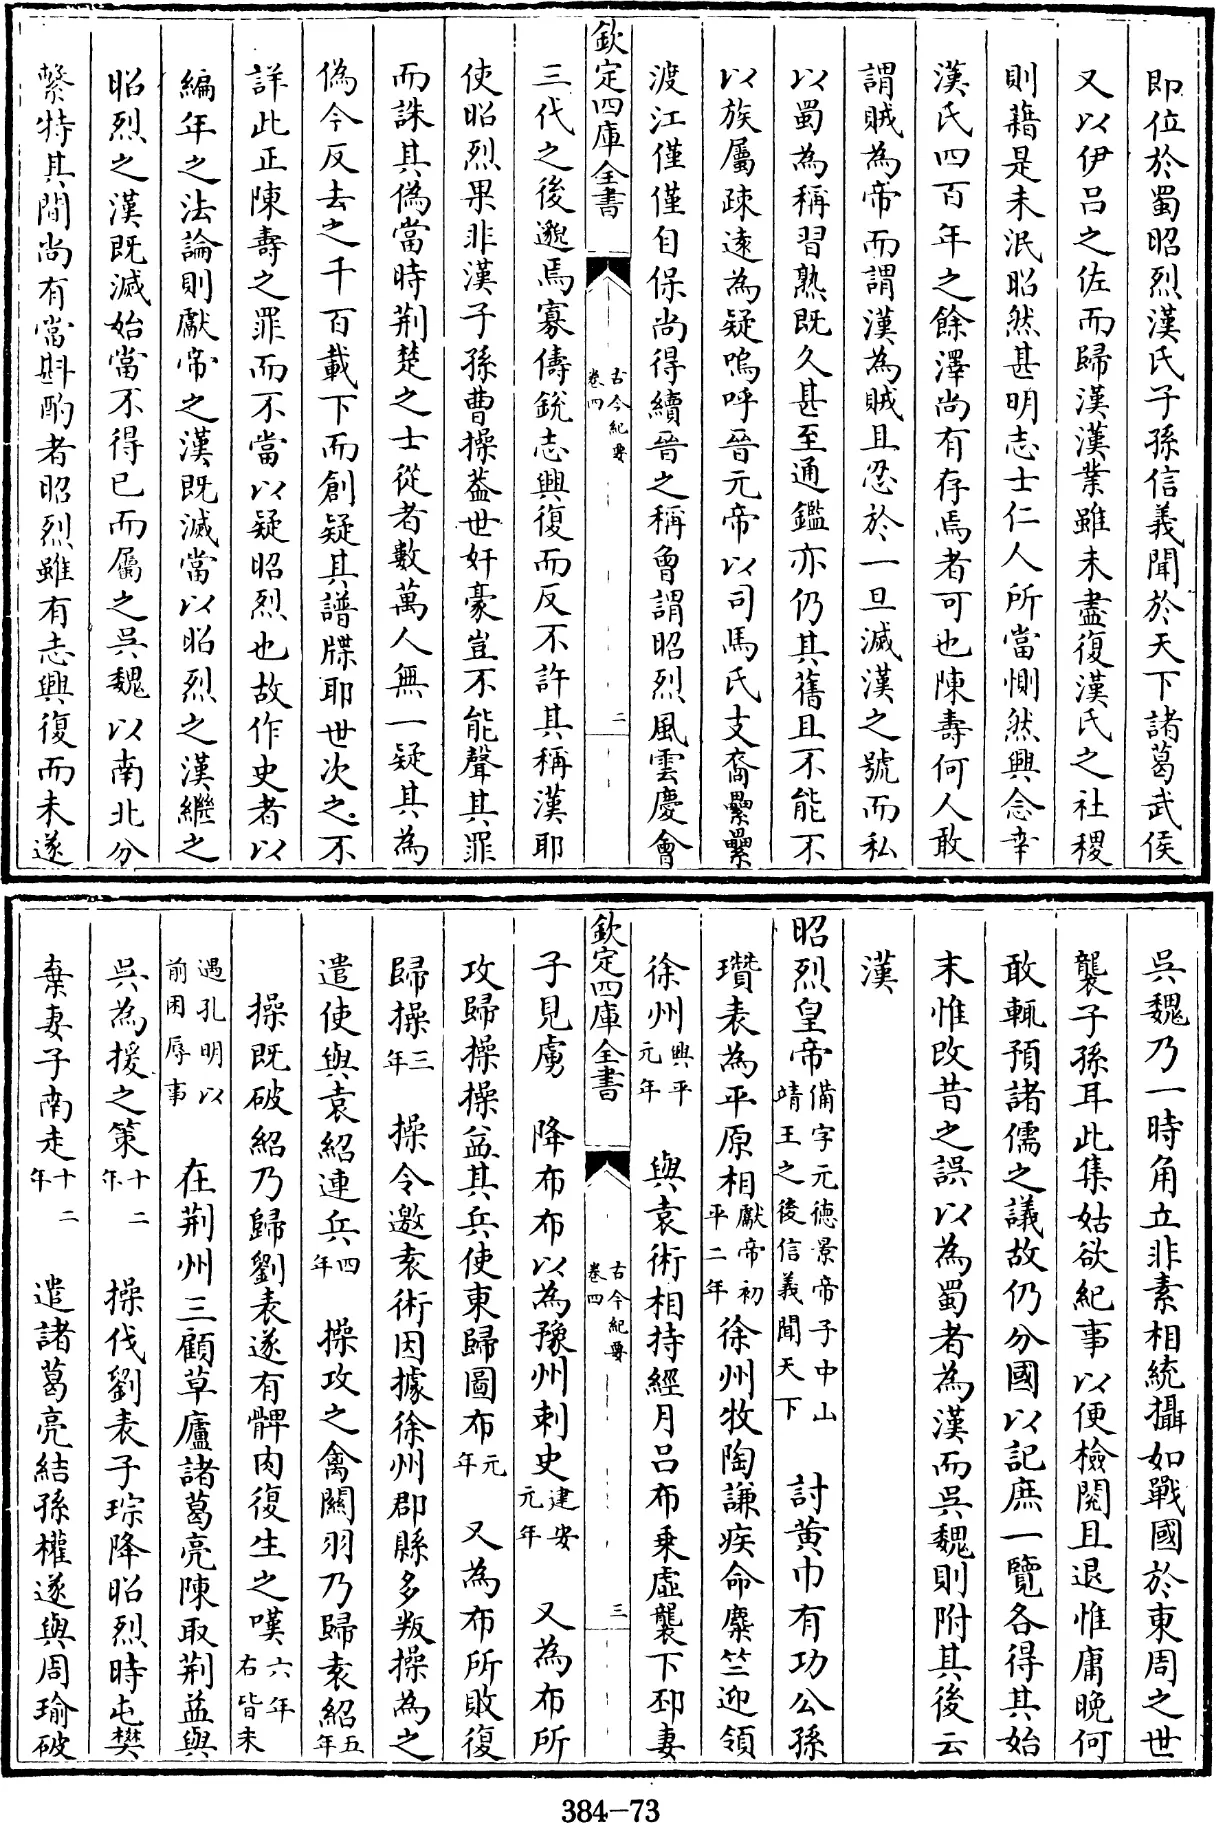 即位於蜀昭烈漢氏子孫信義聞於天下諸葛武侯
又以伊呂之佐而歸漢漢業雖未盡復漢氏之社稷
則藉是未泯昭然甚明志士仁人所當惻然興念幸
漢氏四百年之餘澤尚有存焉者可也陳壽何人敢
謂賊為帝而謂漢為賊且忍於一旦滅漢之號而私
以蜀為稱習熟既久甚至通鑑亦仍其舊且不能不
以族屬疎逺為疑嗚呼晉元帝以司馬氏支裔纍纍
渡江僅僅自保尚得續晉之稱曾謂昭烈風雲慶會
欽定四庫全書
古今紀要
卷四
二
三代之後邈焉寡儔銳志興復而反不許其稱漢耶
使昭烈果非漢子孫曹操蓋世奸豪豈不能聲其罪
而誅其偽當時荆楚之士從者數萬人無一疑其為
偽今反去之千百載下而創疑其譜牒耶世次之不
詳此正陳壽之罪而不當以疑昭烈也故作史者以
編年之法論則獻帝之漢既滅當以昭烈之漢繼之
昭烈之漢既滅始當不得已而屬之吳魏以南北分
繫特其間尚有當斟酌者昭烈雖有志興復而未遂
吳魏乃一時角立非素相統攝如戰國於東周之世
襲子孫耳此集姑欲紀事以便檢閱且退惟庸晩何
敢輒預諸儒之議故仍分國以記庶一覽各得其始
末惟改昔之誤以為蜀者為漢而吳魏則附其後云
漢
昭烈皇帝備字元德景帝子中山靖王之後信義聞天下 討黄巾有功公孫
瓚表為平原相獻帝初平二年徐州牧陶謙疾命麋竺迎領
徐州興平元年 與袁術相持經月呂布乗虛襲下邳妻
欽定四庫全書
古今紀要
卷四
三
子見虜 降布布以為豫州刺史建安元年 又為布所
攻歸操操益其兵使東歸圖布元年 又為布所敗復
歸操三年 操令邀袁術因據徐州郡縣多叛操為之
遣使與袁紹連兵四年 操攻之禽關羽乃歸袁紹五年
操既破紹乃歸劉表遂有髀肉復生之嘆六年右皆未
遇孔明以前困辱事 在荆州三顧草廬諸葛亮陳取荆益與
吳為援之策十二年 操伐劉表子琮降昭烈時屯樊
棄妻子南走十二年 遣諸葛亮結孫權遂與周瑜破
384-73